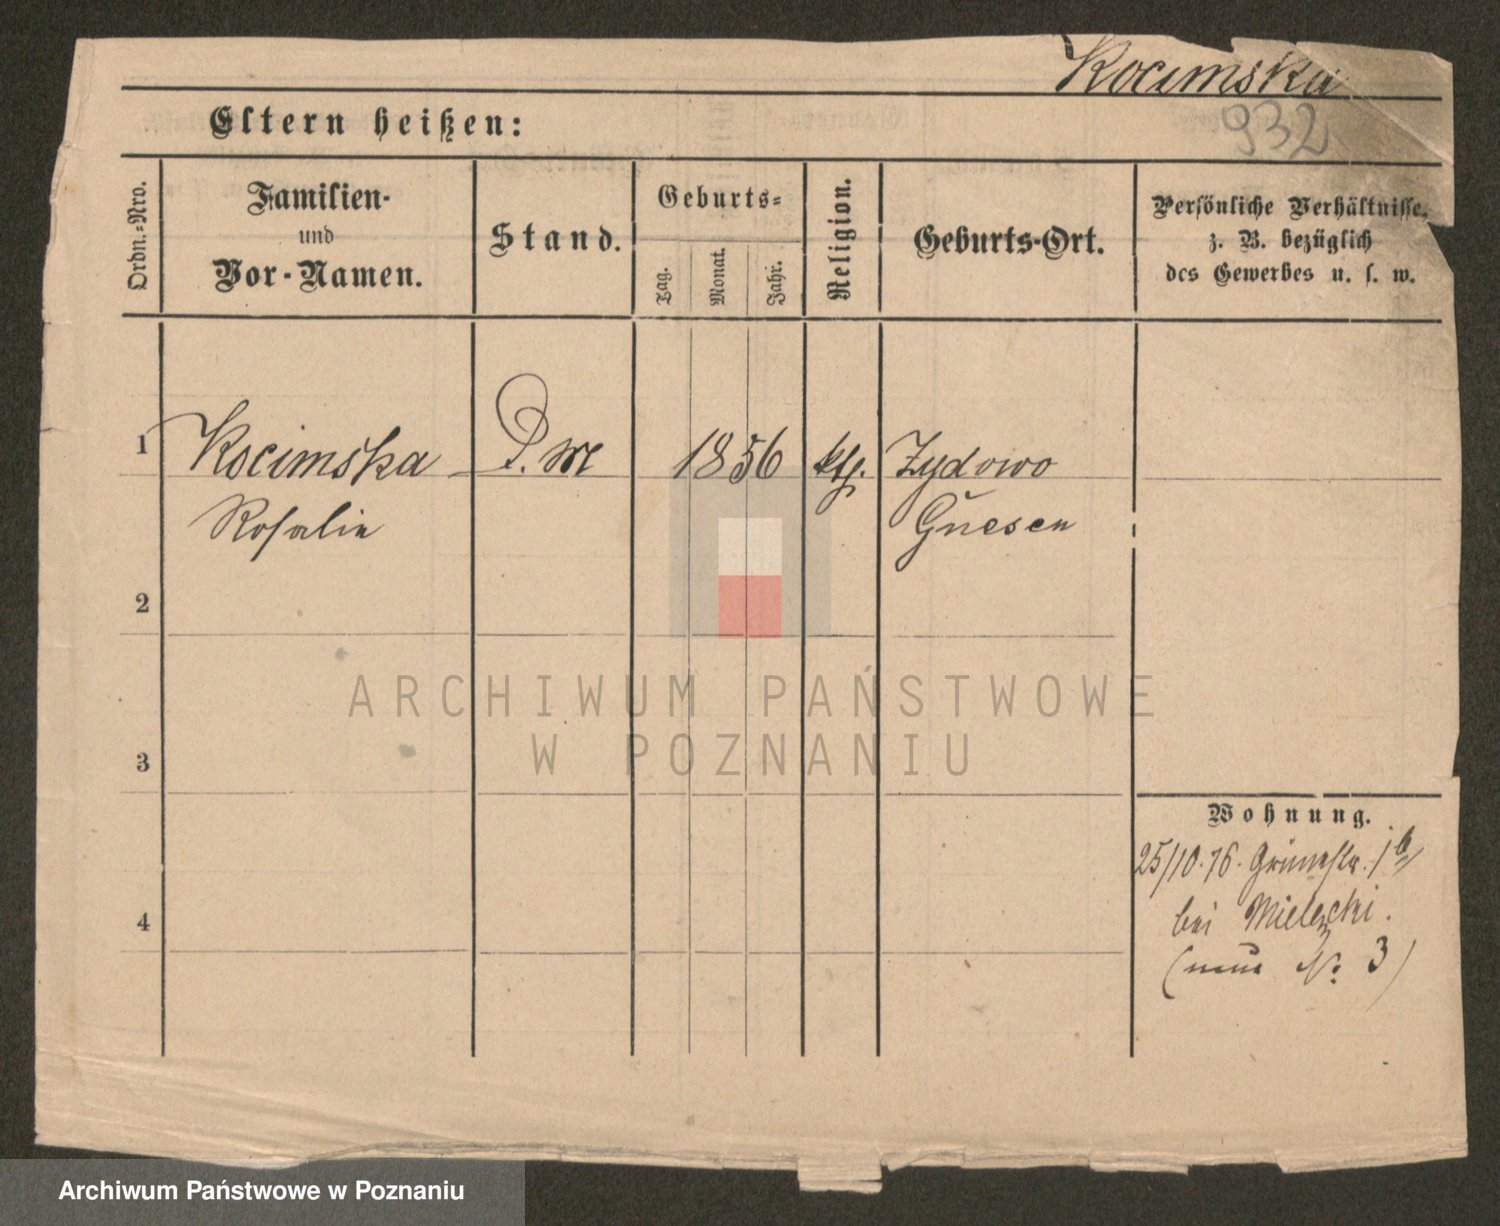 Kocimska
932
Eltern heißen:
Ordn.-Nro.
Familien-
und
Vor-Namen.
Stand.
Geburts-
Tag.
Monat.
Jahr.
Religion.
Geburts-Ort.
Persönliche Verhältnisse,
z. B. bezüglich
des Gewerbes u. s. w.
1
Kocimska
Rosalie
D. M
1856
kth.
Zydowo
Gnesen
2
3
4
Wohnung.
25/10.76. Grünestr. 1b
bei Mielecki.
(neue No. 3)
ARCHIWUM PAŃSTWOWE
W POZNANIU
Archiwum Państwowe w Poznaniu